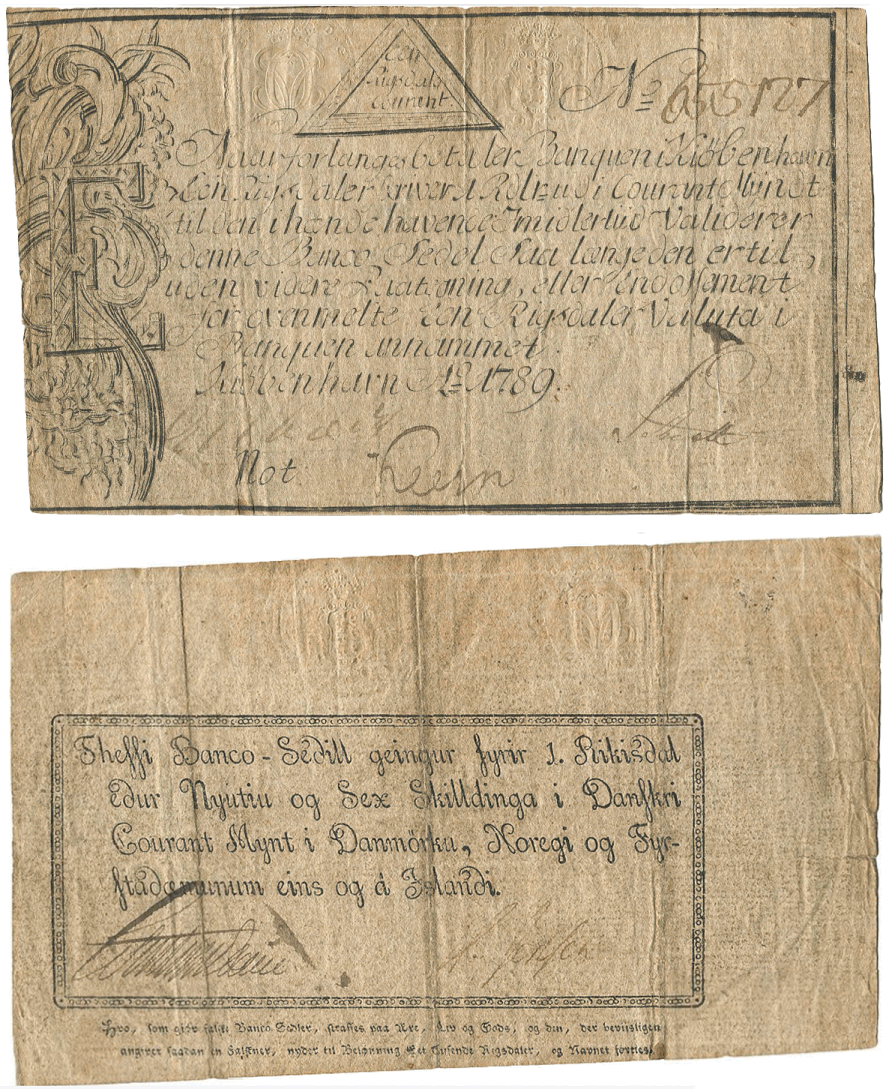 Een
Rigsdaler
Courant.
No 655127
Naar forlanges betaler Banquen i Kiøbenhavn
Een Rigsdaler skriver 1 Rdlr: ud i Courant Mynt
til den ihændehavende Imidlertiid Validerer
denne Banco Sedel saa længe den er til,
uden videre Paategning, eller Endossement
for ovenmelte Een Rigsdaler Valuta i
Banquen annammet.
Kiøbenhavn Ao 1789.
Not. Kern
Thessi Banco-Sedill geingur fyrir 1. Rikisdal
edur Nyutiu og Sex Skilldinga i Danskri
Courant Mynt i Danmörku, Noregi og Fyr-
stadæmunum eins og á Islandi.
Hvo, som giør falske Banco Sedler, straffes paa Ære, Liv og Gods, og den, der beviisligen
angiver saadan en Falskner, nyder til Belønning Eet Tusende Rigsdaler, og Navnet forties.